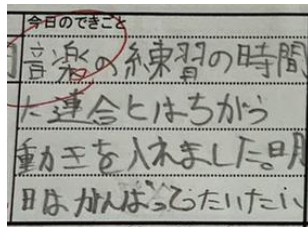 今日のできごと
音楽の練習の時間
に連合とはちがう
動王を入れました。明
日はがんばってたいたい